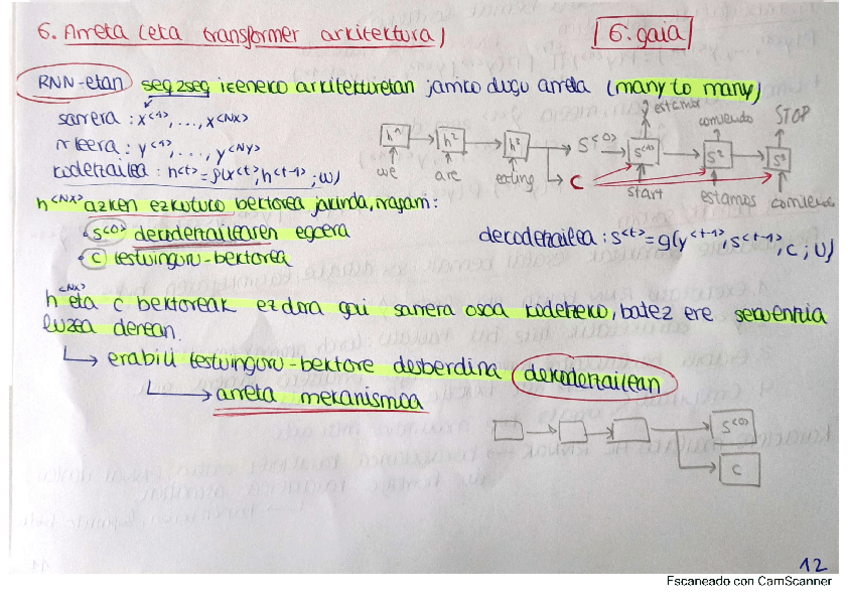 6. Arreta (eta transformer arkitektura)
6. gaia
RNN-etan seq2seq izeneko arkitekturetan jarriko dugu arreta (many to many)
sarrera : x<1>, ..., x<Nx>
irteera : y<1>, ..., y<Ny>
kodetzailea : h<t> = f(x<t>, h<t-1>; W)
h<Nx> azken ezkutuko bektorea jakinda,
s<0> dekodetzailearen egoera
c testuinguru-bektorea
h1 h2 h2 s<0> s<1> s2 s3
we are eating c start estamos comiendo
comiendo STOP
decodetzailea : s<t> = g(y<t-1>, s<t-1>, c ; U)
h<Nx> eta c bektoreak ez dira gai sarrera osoa kodetzeko, batez ere sekuentzia
luzea denean.
erabili testuinguru-bektore desberdina dekodetzailean
arreta mekanismoa
s<0>
c
12
Escaneado con CamScanner